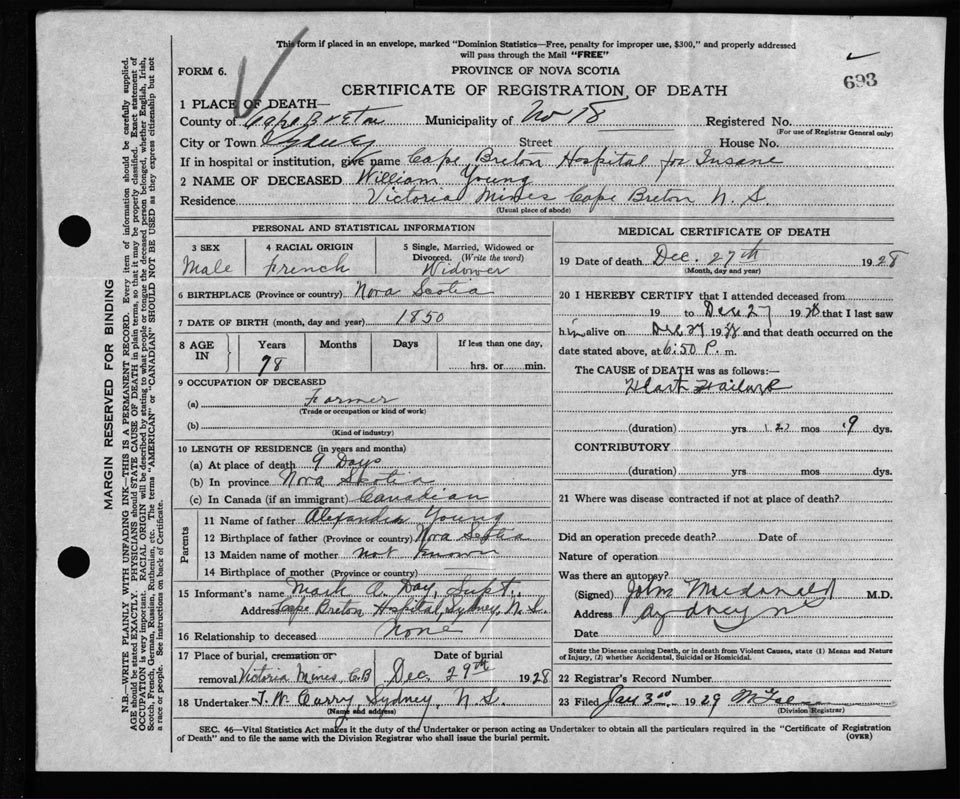 This form if placed in an envelope, marked "Dominion Statistics—Free, penalty for improper use, $300," and properly addressed
will pass through the Mail "FREE"
FORM 6.
PROVINCE OF NOVA SCOTIA
693
CERTIFICATE OF REGISTRATION OF DEATH
1 PLACE OF DEATH—
County of Cape Breton Municipality of No 18 Registered No.
(For use of Registrar General only)
City or Town Sydney Street House No.
If in hospital or institution, give name Cape Breton Hospital for Insane
2 NAME OF DECEASED William Young
Residence Victoria Mines Cape Breton N. S.
(Usual place of abode)
PERSONAL AND STATISTICAL INFORMATION
3 SEX 4 RACIAL ORIGIN 5 Single, Married, Widowed or
Divorced. (Write the word)
Male French Widower
6 BIRTHPLACE (Province or country) Nova Scotia
7 DATE OF BIRTH (month, day and year) 1850
8 AGE IN Years Months Days If less than one day,
78 hrs. or min.
9 OCCUPATION OF DECEASED
(a) Farmer
(Trade or occupation or kind of work)
(b)
(Kind of industry)
10 LENGTH OF RESIDENCE (in years and months)
(a) At place of death 9 Days
(b) In province Nova Skotia
(c) In Canada (if an immigrant) Canadian
Parents
11 Name of father Alexander Young
12 Birthplace of father (Province or country) Nova Scotia
13 Maiden name of mother not known
14 Birthplace of mother (Province or country)
15 Informant's name Mark A. Day, Supt.,
Address Cape Breton Hospital, Sydney, N. S.
16 Relationship to deceased None
17 Place of burial, cremation or Date of burial
removal Victoria Mines, C.B Dec. 29th 1928
18 Undertaker T. W. Curry, Sydney, N. S.
(Name and address)
MEDICAL CERTIFICATE OF DEATH
19 Date of death Dec. 27th 1928
(Month, day and year)
20 I HEREBY CERTIFY that I attended deceased from
19 to Dec 27 1928 that I last saw
him alive on Dec 27 1928 and that death occurred on
date stated above, at 6:50 P. m.
The CAUSE of DEATH was as follows:—
Heart Failure
(duration) yrs mos 9 dys.
CONTRIBUTORY
(duration) yrs. mos. dys.
21 Where was disease contracted if not at place of death?
Did an operation precede death? Date of
Nature of operation
Was there an autopsy?
(Signed) John Macdonald M.D.
Address Sydney N S
Date
State the Disease causing Death, or in death from Violent Causes, state (1) Means and Nature
of Injury, (2) whether Accidental, Suicidal or Homicidal.
22 Registrar's Record Number
23 Filed Jan 3rd 1929
(Division Registrar)
SEC. 46—Vital Statistics Act makes it the duty of the Undertaker or person acting as Undertaker to obtain all the particulars required in the "Certificate of Registration
of Death" and to file the same with the Division Registrar who shall issue the burial permit.
(OVER)
MARGIN RESERVED FOR BINDING
N.B.—WRITE PLAINLY WITH UNFADING INK—THIS IS A PERMANENT RECORD. Every item of information should be carefully supplied.
AGE should be stated EXACTLY. PHYSICIANS should STATE CAUSE OF DEATH in plain terms, so that it may be properly classified. Exact statement of
OCCUPATION is very important. RACIAL ORIGIN will be described by stating to what people or tongue the deceased person belonged, whether English, Irish,
Scotch, French, German, Russian, Ruthenian, etc. The terms "AMERICAN" or "CANADIAN" SHOULD NOT BE USED as they express citizenship but not
a race or people. See instructions on back of Certificate.